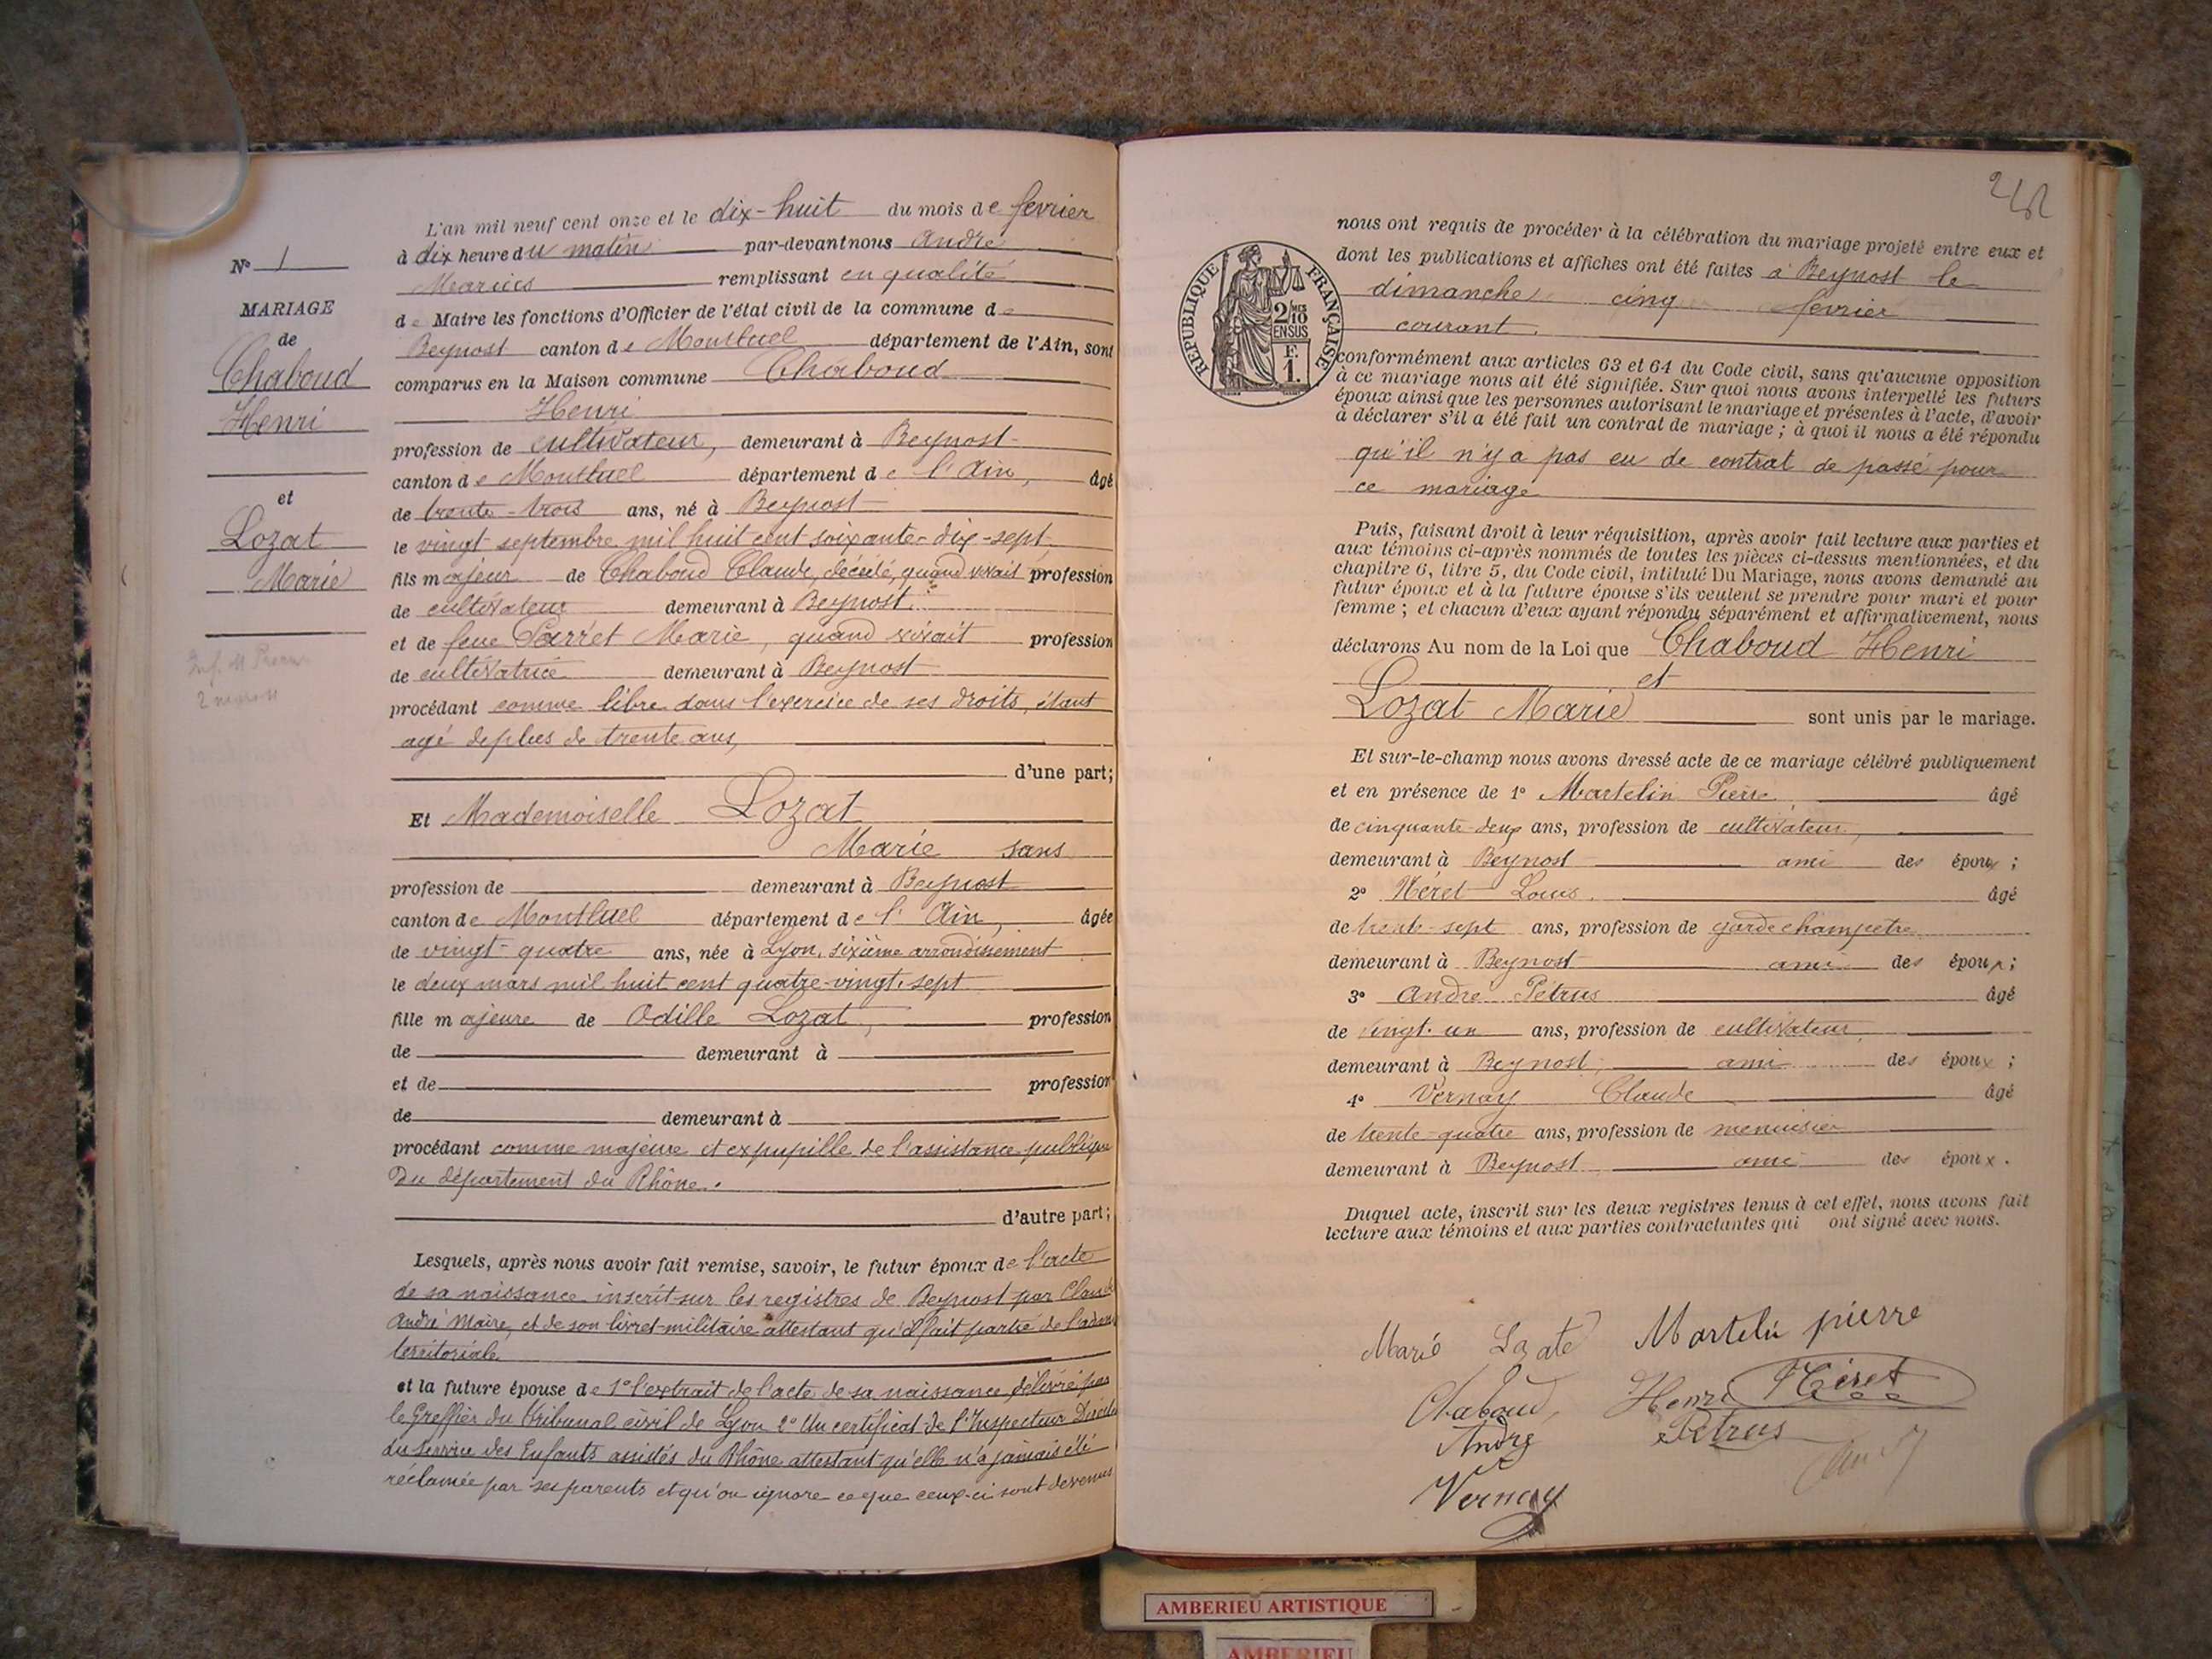 L'an mil neuf cent onze et le dix-huit du mois de fevrier
à dix heure du matin par-devant nous André
Marius remplissant en qualité
de Maire les fonctions d'Officier de l'état civil de la commune de
Beynost canton de Montluel département de l'Ain, sont
comparus en la Maison commune Chaboud
Henri
profession de cultivateur, demeurant à Beynost
canton de Montluel département de l'Ain, âgé
de trente-trois ans, né à Beynost
le vingt septembre mil huit cent soixante-dix-sept
fils majeur de Chaboud Claude, décédé, quand vivait profession
de cultivateur demeurant à Beynost
et de feue Parret Marie, quand vivait profession
de cultivatrice demeurant à Beynost
procédant comme libre dans l'exercice de ses droits, étant
agé de plus de trente ans,
d'une part;
Et Mademoiselle Lozat
Marie sans
profession de demeurant à Beynost
canton de Montluel département de l'Ain, âgée
de vingt-quatre ans, née à Lyon, sixième arrondissement
le deux mars mil huit cent quatre-vingt-sept
fille majeure de Odille Lozat, profession
de demeurant à
et de profession
de demeurant à
procédant comme majeure et ex pupille de l'assistance publique
du département du Rhône.
d'autre part;
Lesquels, après nous avoir fait remise, savoir, le futur époux de l'acte
de sa naissance inscrit sur les registres de Beynost par Claude
André Maire, et de son livret militaire attestant qu'il fait partie de l'armée
territoriale
et la future épouse de 1° l'extrait de l'acte de sa naissance délivré par
le Greffier du Tribunal civil de Lyon 2° Un certificat de l'Inspecteur
du Service des Enfants assistés du Rhône attestant qu'elle n'a jamais été
réclamée par ses parents et qu'on ignore ce que ceux-ci sont devenus
N° 1
MARIAGE
de
Chaboud
Henri
et
Lozat
Marie
nous ont requis de procéder à la célébration du mariage projeté entre eux et
dont les publications et affiches ont été faites à Beynost le
dimanche cinq fevrier
courant.
REPUBLIQUE FRANÇAISE
2/10 MES
EN SUS
F.
1.
conformément aux articles 63 et 64 du Code civil, sans qu'aucune opposition
à ce mariage nous ait été signifiée. Sur quoi nous avons interpellé les futurs
époux ainsi que les personnes autorisant le mariage et présentes à l'acte, d'avoir
à déclarer s'il a été fait un contrat de mariage; à quoi il nous a été répondu
qu'il n'y a pas eu de contrat de passé pour
ce mariage
Puis, faisant droit à leur réquisition, après avoir fait lecture aux parties et
aux témoins ci-après nommés de toutes les pièces ci-dessus mentionnées, et du
chapitre 6, titre 5, du Code civil, intitulé Du Mariage, nous avons demandé au
futur époux et à la future épouse s'ils veulent se prendre pour mari et pour
femme; et chacun d'eux ayant répondu séparément et affirmativement, nous
déclarons Au nom de la Loi que Chaboud Henri
et
Lozat Marie sont unis par le mariage.
Et sur-le-champ nous avons dressé acte de ce mariage célébré publiquement
et en présence de 1° Martelin Pierre âgé
de cinquante-deux ans, profession de cultivateur,
demeurant à Beynost ami des époux;
2° Héret Louis. âgé
de trente-sept ans, profession de garde champetre
demeurant à Beynost ami des époux;
3° André Petrus âgé
de vingt-un ans, profession de cultivateur,
demeurant à Beynost, ami des époux;
4° Vernay Claude âgé
de trente-quatre ans, profession de menuisier
demeurant à Beynost ami des époux.
Duquel acte, inscrit sur les deux registres tenus à cet effet, nous avons fait
lecture aux témoins et aux parties contractantes qui ont signé avec nous.
Marie Lozate Martelin pierre
Chaboud, Henri Héret
André Petrus
Vernay
AMBERIEU ARTISTIQUE
AMBERIEU